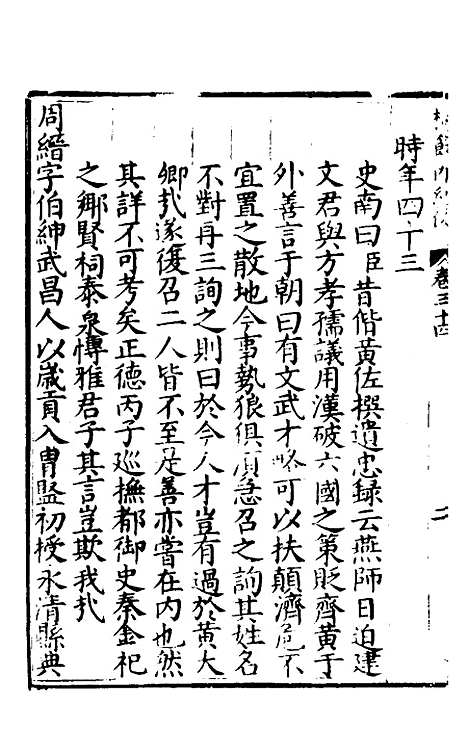 卷三十四
二
時年四十三
史南曰臣昔偕黃佐撰遺忠録云燕師日迫建
文君與方孝孺議用漢破六國之策貶齊黃于
外善言于朝曰有文武才略可以扶顛濟危不
宜置之散地今事勢狼俱須急召之詢其姓名
不對再三詢之則曰於今人才豈有過於黃大
卿㢤遂復召二人皆不至是善亦嘗在内也然
其詳不可考矣正德丙子巡撫都御史秦金祀
之郷賢祠泰泉慱雅君子其言豈欺我㢤
周縉字伯紳武昌人以歲貢入胄監初授永清縣典